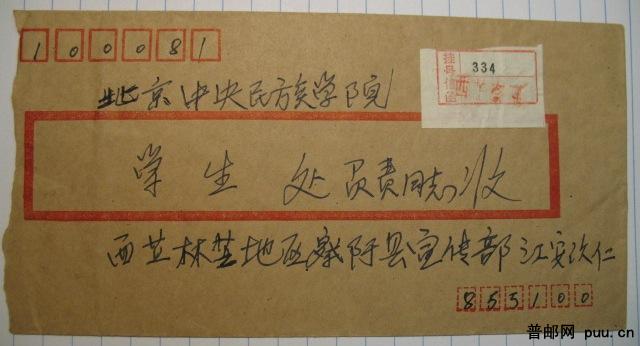 100081
挂号信函
334
西
北京中央民族学院
学生处负责同志收
西藏林芝地区察隅县宣传部江安次仁
855100
普邮网 puu.cn